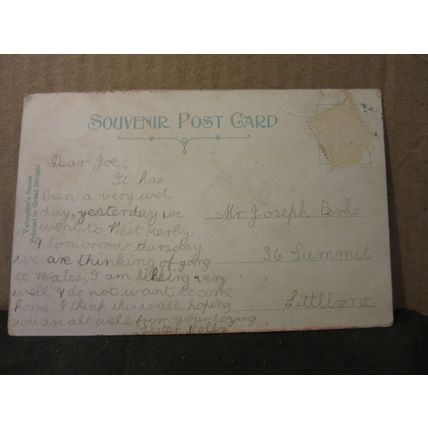 SOUVENIR POST CARD
Valentine's Series
Printed in Great Britain
Dear Joe
It has
been a very wet
day, yesterday we
went to West Kerby
& tomorrow thursday
we are thinking of going
to Wales, I am liking very
well & do not want to come
home I think this is all hoping
you are all well from your loving
Sister
Mr Joseph
36 Summit
Littlboro